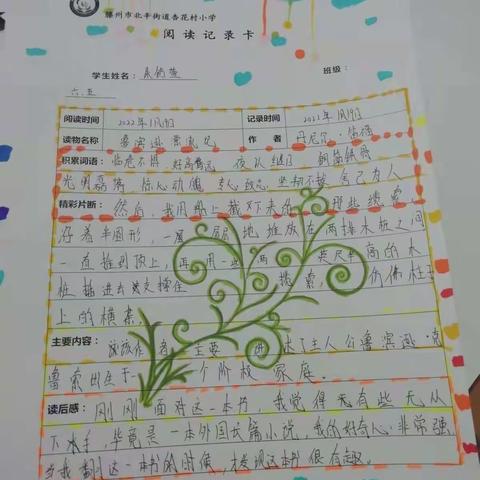 滕州市北辛街道杏花村小学
阅读记录卡
学生姓名： 班级：
六.五
阅读时间 2022年1月19日 记录时间 2022年1月19日
读物名称 鲁滨逊漂流记 作者 丹尼尔·笛福
积累词语：临危不惧 好高骛远 夜以继日
光明磊落 惊心动魄 专心致志 坚韧不拔 舍己为人
精彩片断：然后，我用船上截下来的那些缆索，
沿着半圆形，一层层地堆放在两排木板之间
一直堆到顶上，再用一些两英尺半高的木
桩插进去支撑住缆索，仿佛柱子
上的横条
主要内容：主要讲述了主人公鲁滨逊·克
鲁索出生于一个阶级家庭。
读后感：刚刚面对这一本书，我觉得无有些无从
下手，毕竟是一本外国长篇小说，我的好奇心非常强
当我翻这一本书的时候，才发现这本书很有趣。